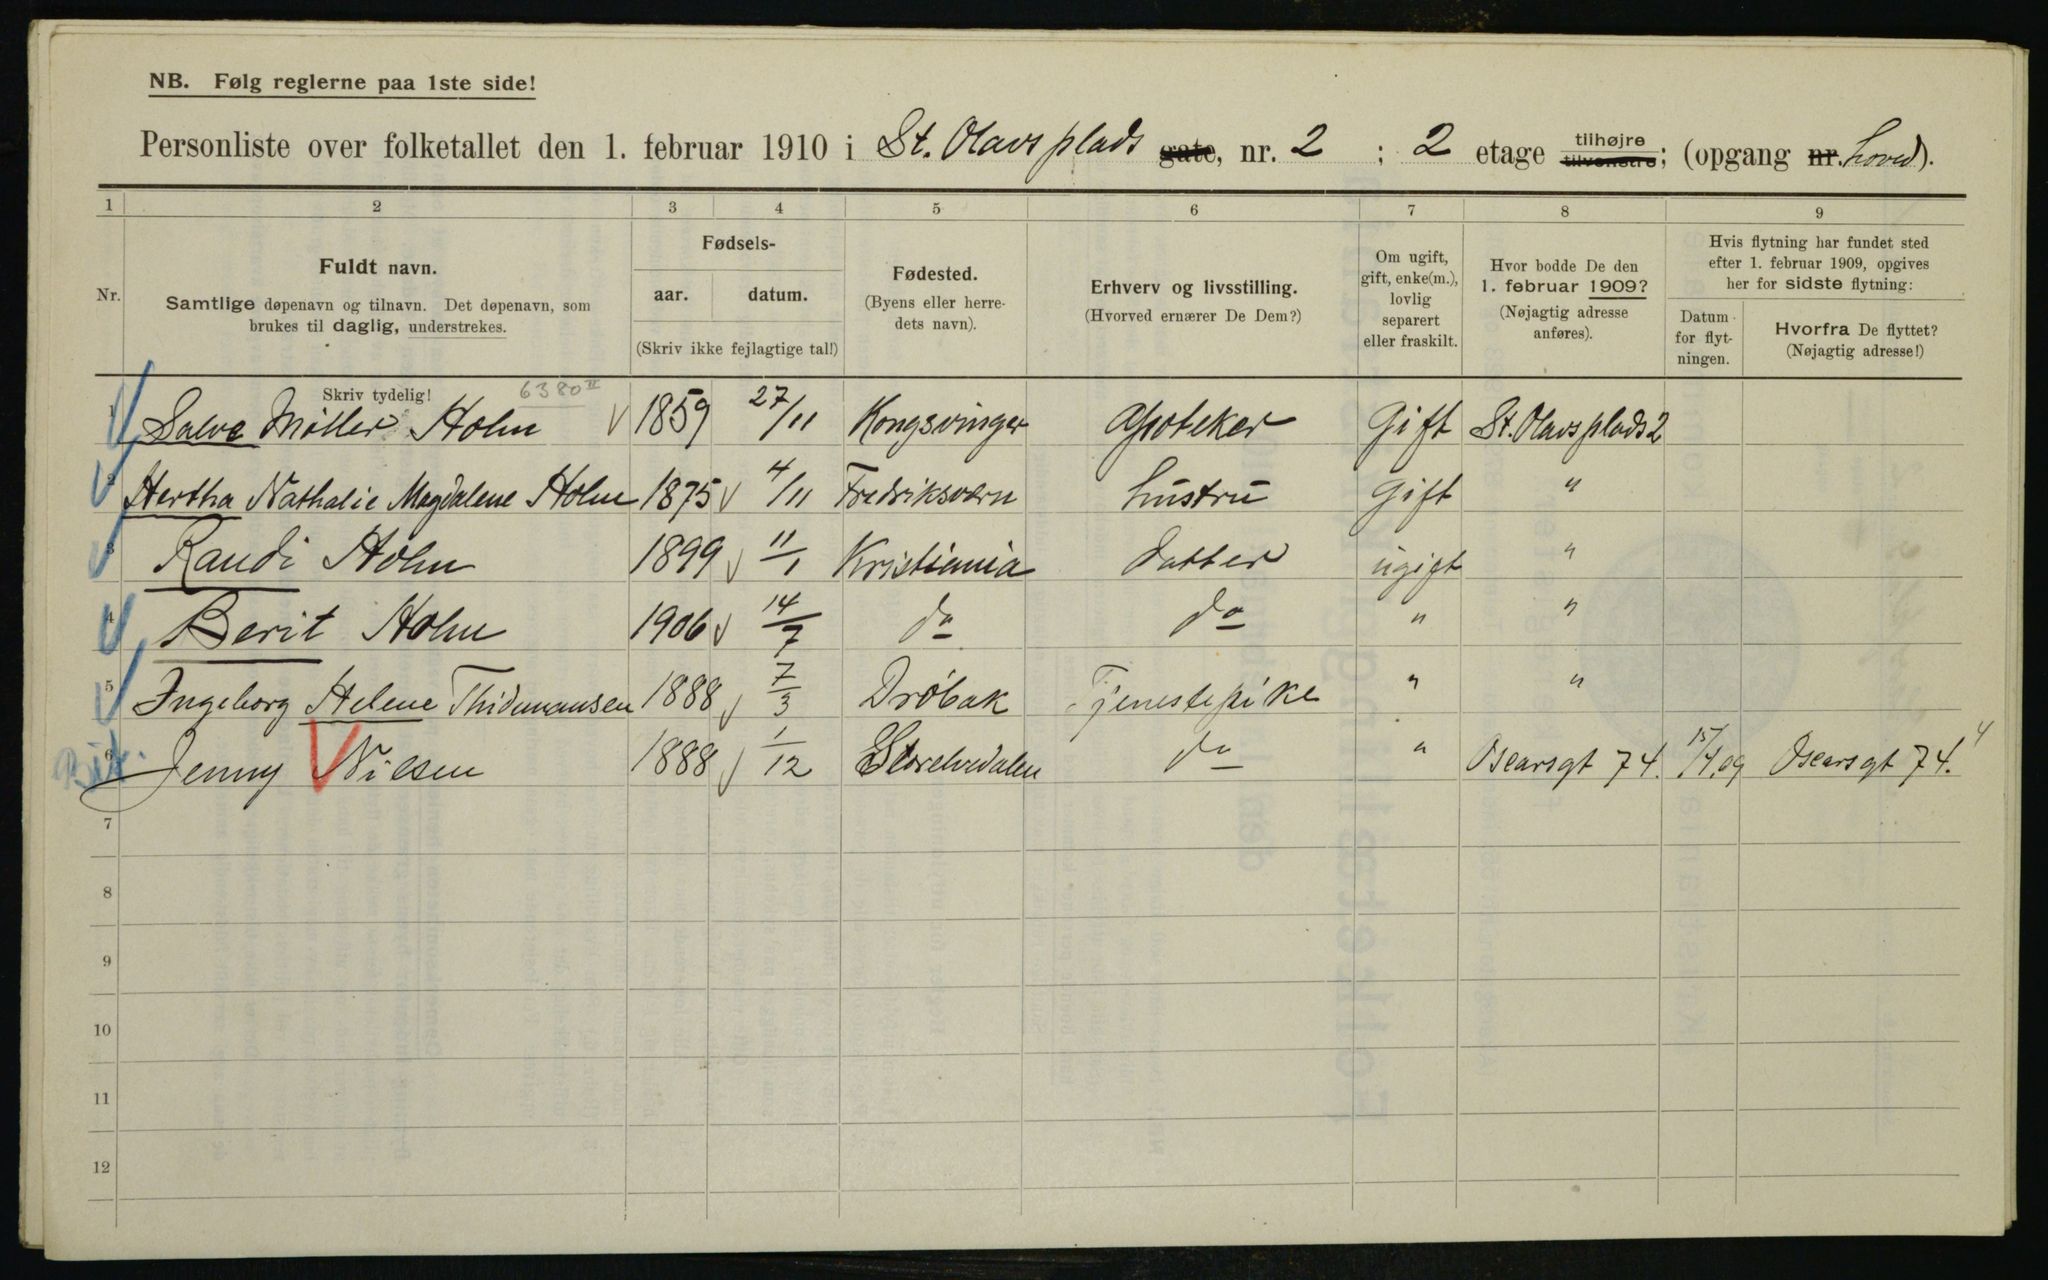 NB. Følg reglerne paa 1ste side!
Personliste over folketallet den 1. februar 1910 i St. Olavs plads gate, nr. 2 ; 2 etage tilhøjre tilvenstre; (opgang nr. hoved).
1 2 3 4 5 6 7 8 9
Nr.
Fuldt navn.
Samtlige døpenavn og tilnavn. Det døpenavn, som
brukes til daglig, understrekes.
Fødsels-
aar. datum.
(Skriv ikke fejlagtige tal!)
Fødested.
(Byens eller herre-
dets navn).
Erhverv og livsstilling.
(Hvorved ernærer De Dem?)
Om ugift,
gift, enke(m.),
lovlig
separert
eller fraskilt.
Hvor bodde De den
1. februar 1909?
(Nøjagtig adresse
anføres).
Hvis flytning har fundet sted
efter 1. februar 1909, opgives
her for sidste flytning:
Datum
for flyt-
ningen.
Hvorfra De flyttet?
(Nøjagtig adresse!)
Skriv tydelig! 6380 II
1 Salve Møller Holm 1859 27/11 Kongsvinger Apoteker Gift St. Olavs plads 2
2 Hertha Nathalie Magdalene Holm 1875 4/11 Fredriksværn hustru Gift "
3 Randi Holm 1899 11/1 Kristiania datter ugift "
4 Berit Holm 1906 14/7 do do " "
5 Ingeborg Helene Thidemansen 1888 7/3 Drøbak Tjenestepike " "
6 Jenny Nilsen 1888 1/12 Storelvedalen do " Oscarsgt 74. 15/4.09 Oscarsgt 74. 4
7
8
9
10
11
12